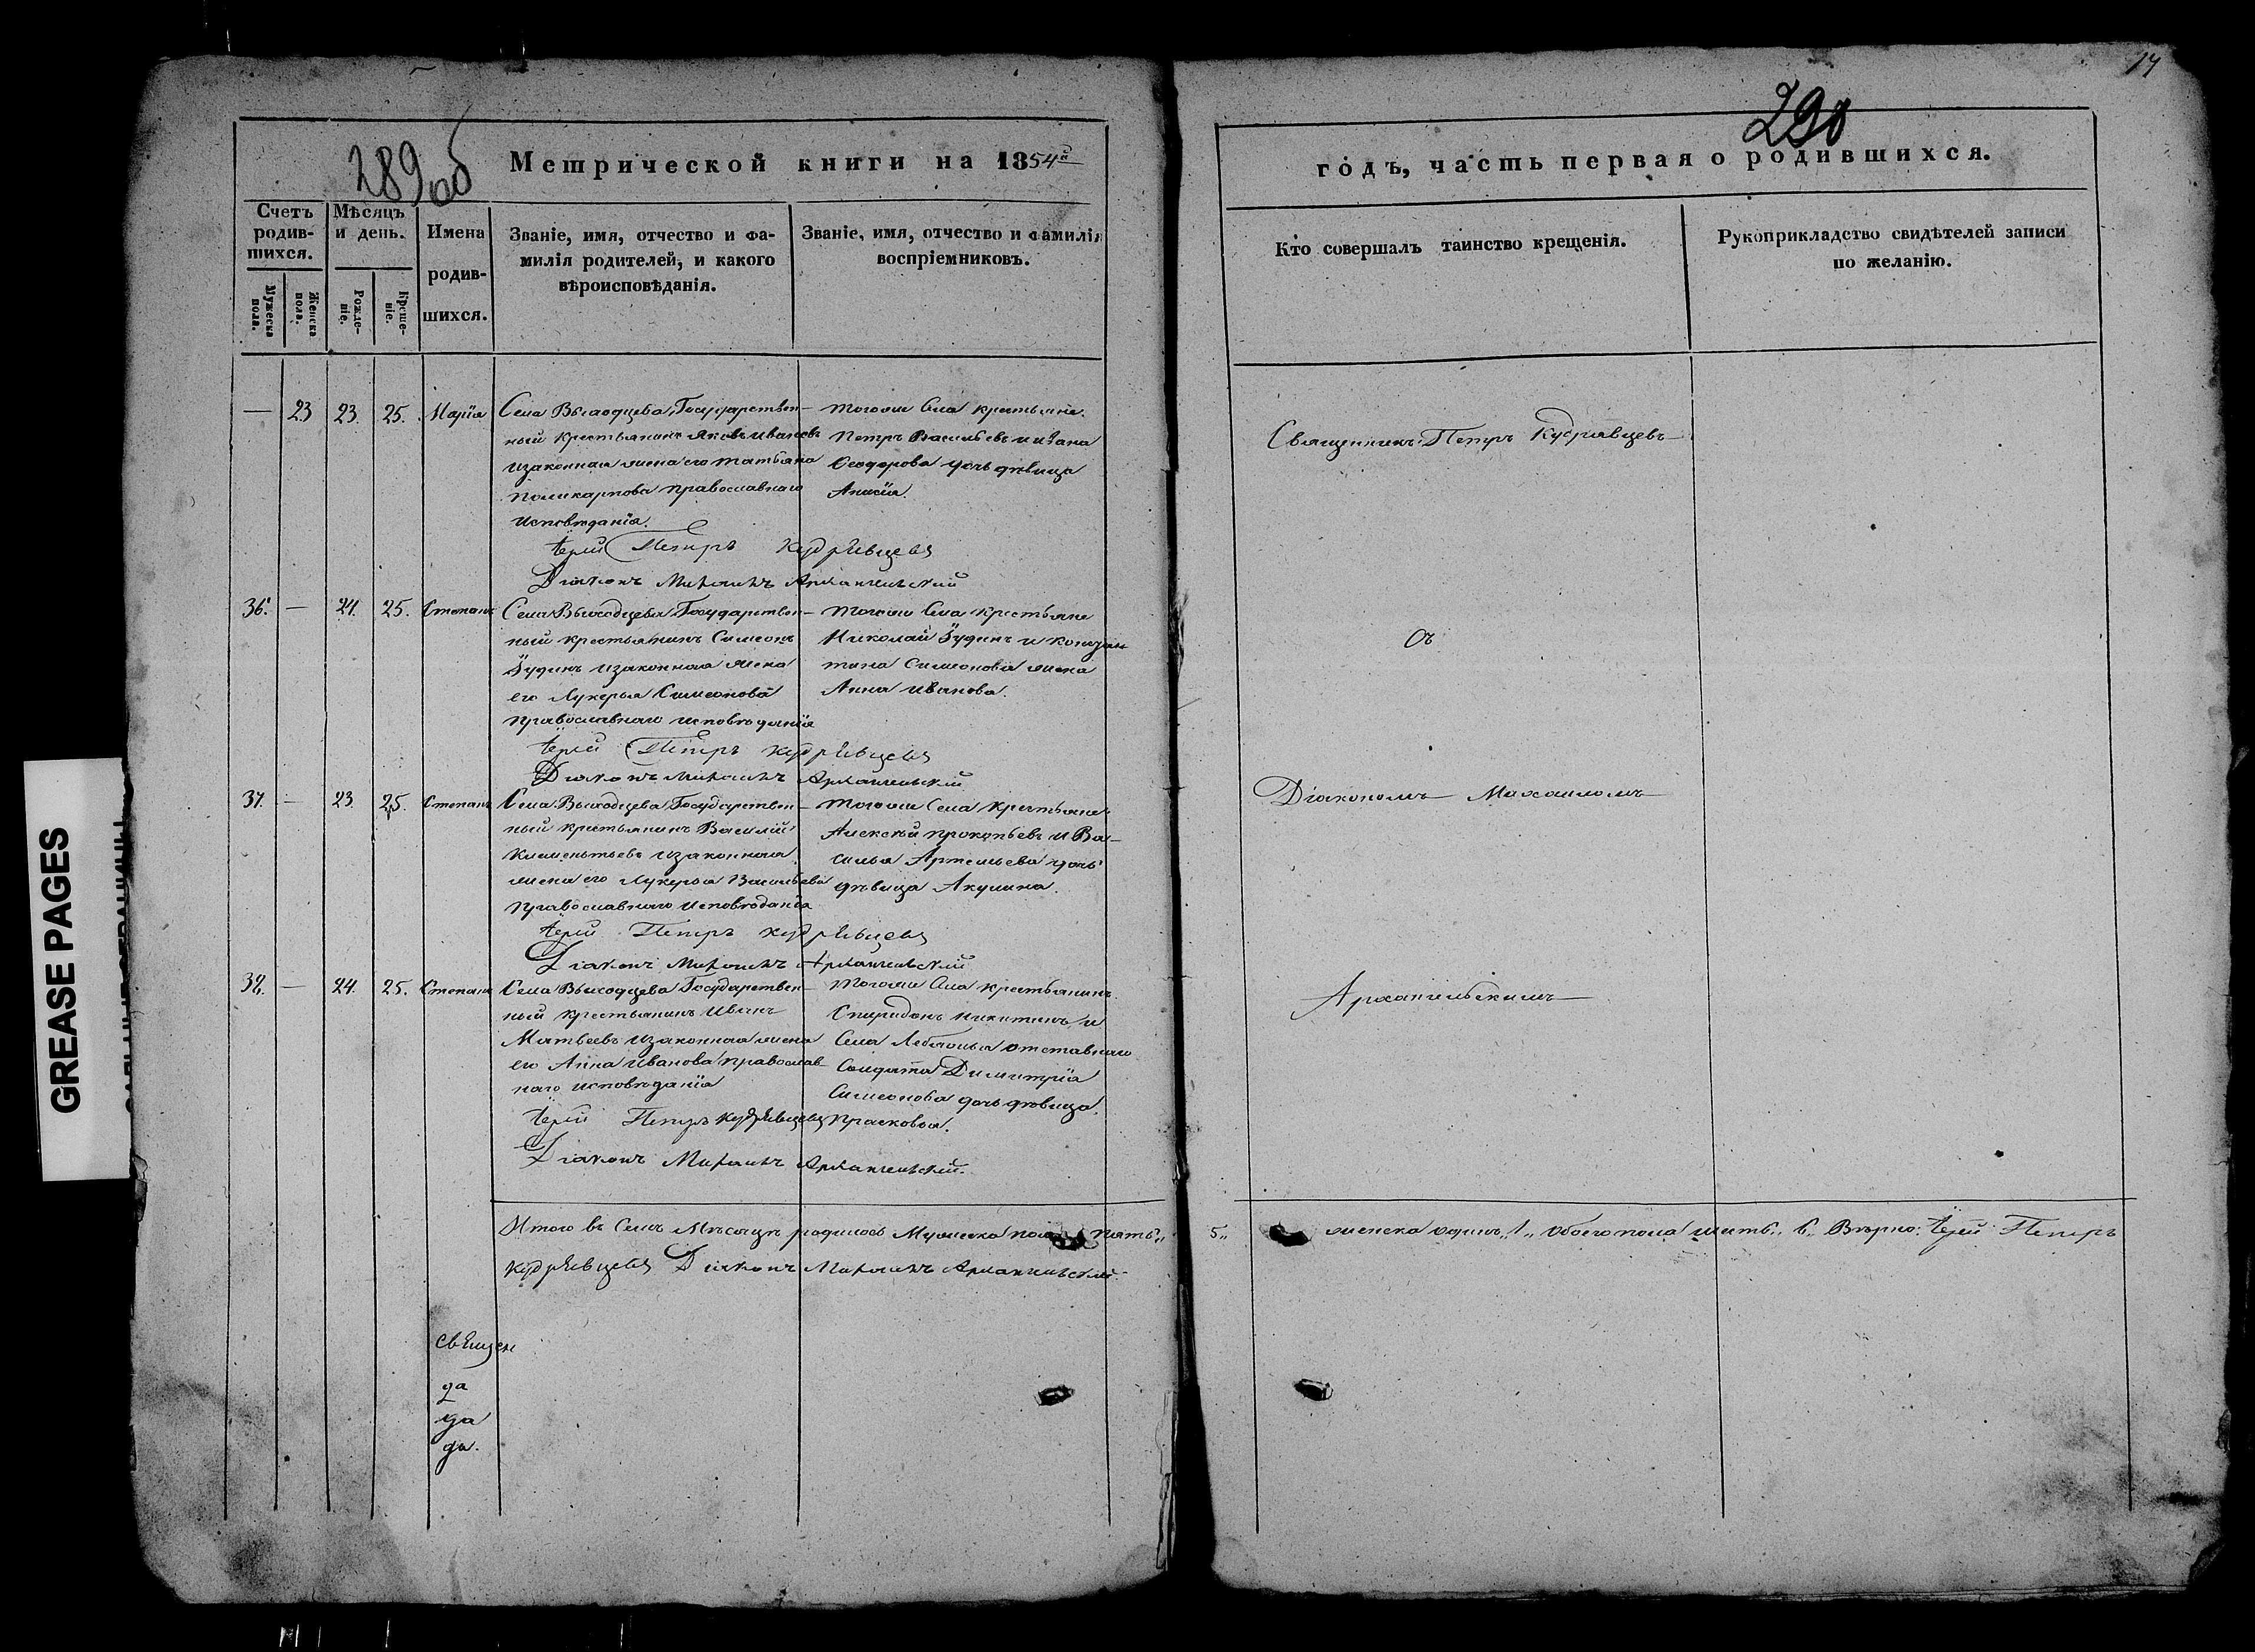 14
289об
290
Метрической книги на 1854й
годъ, часть первая о родившихся.
Счетъ родив-шихся.
Мужеска пола.
Женска пола.
Мѣсяцъ и день.
Рожде-ніе.
Креще-ніе.
Имена родив-шихся.
Званіе, имя, отчество и фа-
милія родителей, и какого
вѣроисповѣданія.
Званіе, имя, отчество и фамилія
воспріемниковъ.
Кто совершалъ таинство крещенія.
Рукоприкладство свидѣтелей записи
по желанію.
— 23 23. 25. Марія
Села Выходцева, Государствен-
ный крестьянинъ Яковъ Ивановъ
изаконная жена его Татьяна
Поликарпова православнаго
исповѣданія.
Іерей Петръ Кудрявцевъ
Діаконъ Михаилъ Архангельскій
тогоже Села крестьяне
Петръ Васильевъ и
Ѳеодорова дочь дѣвица
Священникъ Петръ Кудрявцевъ
36. — 24. 25. Степанъ
Села Выходцева, Государствен-
ный крестьянинъ Симеонъ
изаконная жена
его Лукерья Симеонова
православнаго исповѣданія
Іерей Петръ Кудрявцевъ
Діаконъ Михаилъ Архангельскій
тогоже Села крестьяне
Николай и
Симеонова жена
Анна Иванова.
Съ
37. — 23 25. Степанъ
Села Выходцева, Государствен-
ный крестьянинъ Василій
Клементьевъ изаконная
жена его Лукерья Васильева
Православнаго исповѣданія
Іерей Петръ Кудрявцевъ
Діаконъ Михаилъ Архангельскій
тогоже Села крестьяне
Алексѣй Прокопьевъ и Ва-
силья Артемьева дочь
дѣвица Акулина.
Діакономъ Михаиломъ
38. — 24 25. Степанъ
Села Выходцева Государствен-
ный крестьянинъ Иванъ
Матвеевъ изаконная жена
его Анна Иванова православ-
наго исповѣданія
Іерей Петръ Кудрявцевъ
Діаконъ Михаилъ Архангельскій.
тогоже Села крестьянинъ
Спиридонъ Никитинъ и
Села отставнаго
Солдата Димитрія
Симеонова дочь дѣвица
Прасковья.
Архангельскимъ
Итого въ Семъ Мѣсяцѣ родилось Мужеска пола пять „5„ женска одинъ „1„ Обоего пола шесть „6„ Вѣрно: Іерей Петръ
Кудрявцевъ Діаконъ Михаилъ Архангельскій
Священ
да
да
да.
GREASE PAGES